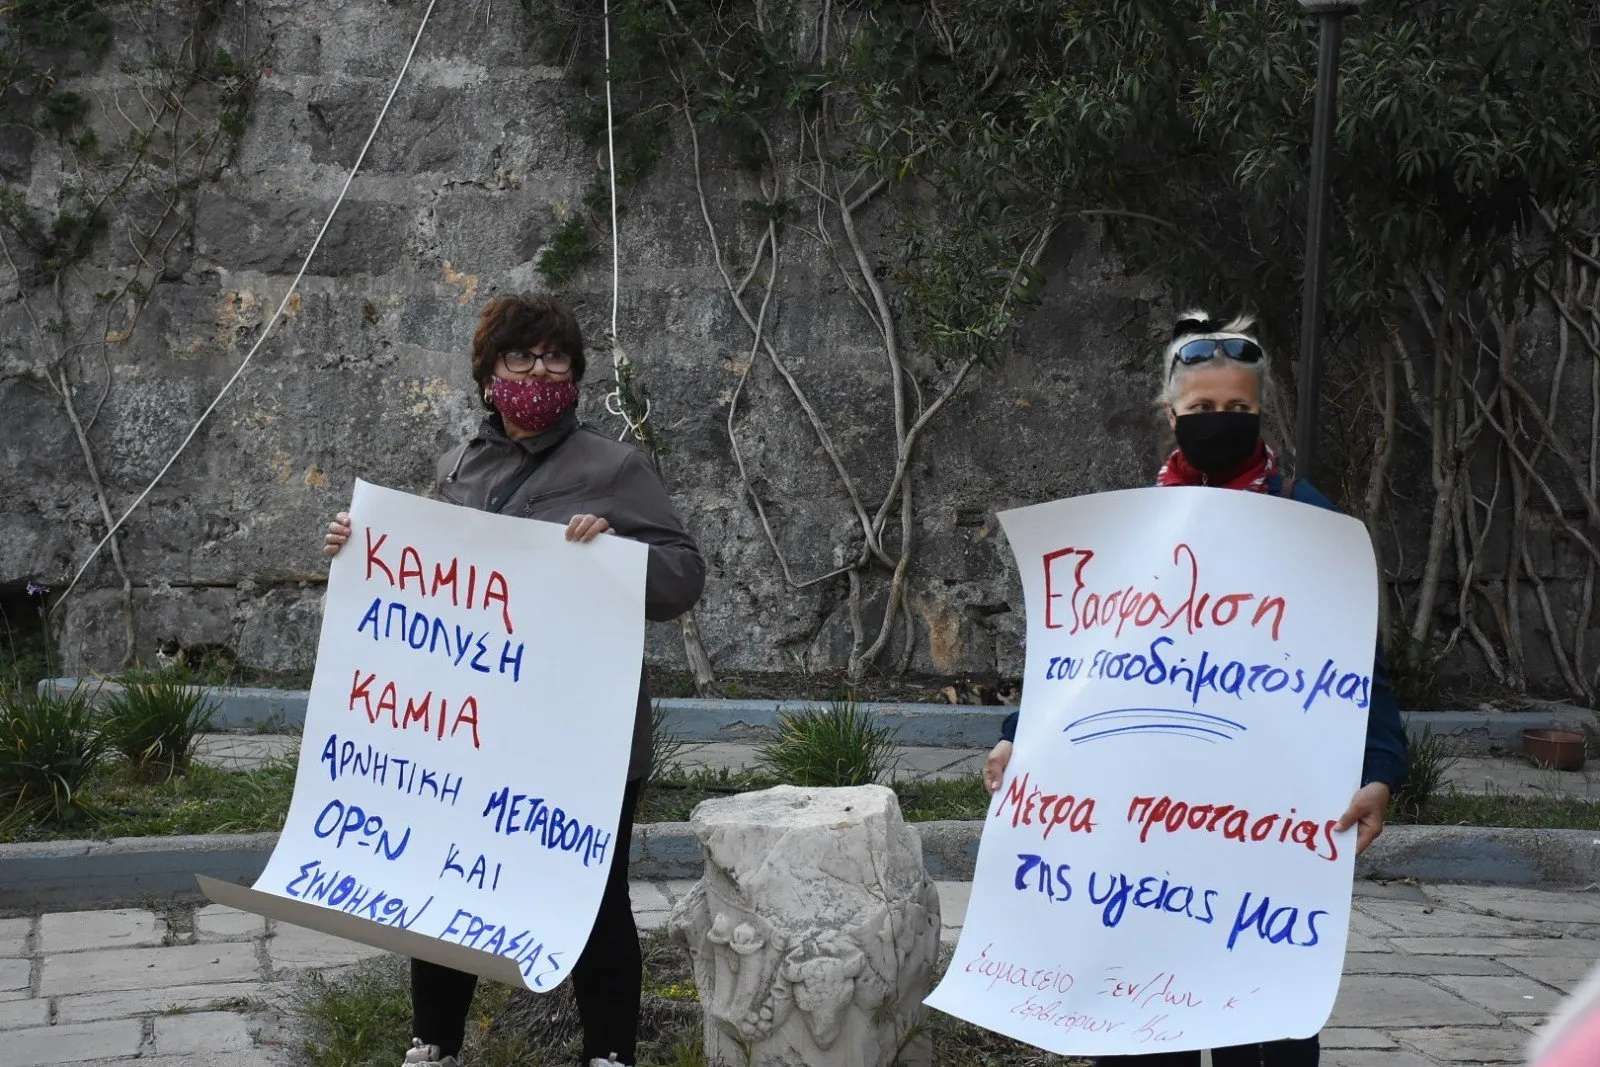 ΚΑΜΙΑ
ΑΠΟΛΥΣΗ
ΚΑΜΙΑ
ΑΡΝΗΤΙΚΗ ΜΕΤΑΒΟΛΗ
ΟΡΩΝ ΚΑΙ
ΣΥΝΘΗΚΩΝ ΕΡΓΑΣΙΑΣ
Εξασφάλιση
του εισοδήματός μας
Μέτρα προστασίας
της υγείας μας
Σωματείο Ξεν/λων κ'
Σερβιτόρων Κω